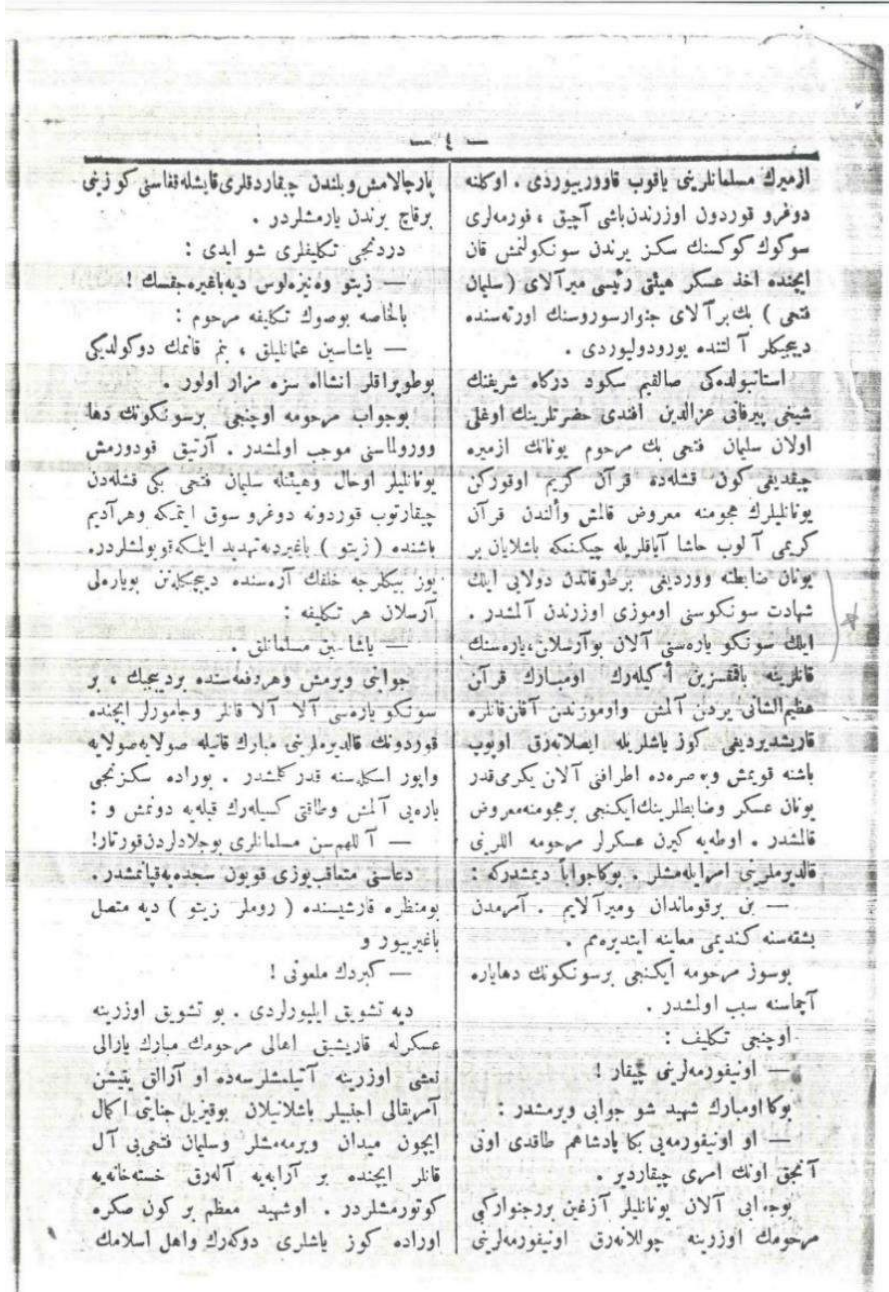 — ٤ —
ازميرك مسلمانلرينى ياقوب قاووريیوردى . اوكلنه
دوغرو قوردون اوزرندن باشى آچيق ، فورمه‌لرى
سوكوك كوكسنك سكز يرندن سونكولنمش قان
ايچنده اخذ عسكر هيئتى رئيسى ميرآلاى ( سليمان
فتحى ) بك بر آلاى جنوار سوروسنك اورته‌سنده
ديپچيكلر آلتنده يورودوليوردى .
استانبولده‌كى صالقيم سكود دركاه شريفنك
شيخى پيرفانى عزالدين افندى حضرتلرينك اوغلى
اولان سليمان فتحى بك مرحوم يونانك ازميره
چيقديغى كون قشله‌ده قرآن كريم اوقوركن
يونانليلرك هجومنه معروض قالمش وألندن قرآن
كريمى آلوب حاشا آياقلريله چيكنمكه باشلايان بر
يونان ضابطنه وورديغى بر طوقاتدن دولايى ايلك
شهادت سونكوسنى اوموزى اوزرندن آلمشدر .
ايلك سونكو ياره‌سنى آلان بو آرسلان ، ياره‌سنك
قانلرينه باقمقسزين أكيله‌رك اومبارك قرآن
عظيم‌الشانى يردن آلمش واوموزندن آقان قانلره
قاريشديرديغى كوز ياشلريله ايصلانه‌رق اوپوب
باشنه قويمش و صره‌ده اطرافنى آلان يكرمى قدر
يونان عسكر وضابطلرينك ايكنجى برهجومنه معروض
قالشدر . اوطه‌يه كيرن عسكرلر مرحومه اللرينى
قالديرملرينى امر ايله‌مشلر . بوكا جواباً ديمشدركه :
— بن برقوماندان وميرآلايم . آمرمدن
بشقه‌سنه كنديمى معاينه ايتديره‌مم .
بوسوز مرحومه ايكنجى برسونكونك دهاياره
آچماسنه سبب اولمشدر .
اوچنجى تكليف :
— اونيفورمه‌لرينى چيقار !
بوكا اومبارك شهيد شو جوابى ويرمشدر :
— او اونيفورمه‌يى بكا پادشاهم طاقدى اونى
آنجق اونك امرى چيقارير .
بوجوابى آلان يونانليلر آزغين بررجنواركبى
مرحومك اوزرينه چوللانه‌رق اونيفورمه‌لرينى
پارچالامش و بلندن چيقاردقلرى قايشله قفاسنى كوزينى
برقاچ يرندن يارمشلردر .
دردنجى تكليفلرى شو ايدى :
— زيتو وه‌نيزه‌لوس ديه باغيره‌جقسك !
بالخاصه بوصوك تكليفه مرحوم :
— ياشاسين عثمانليلق ، بنم قانمك دوكولديكى
بوطوپراقلر انشاالله سزه مزار اولور .
بوجواب مرحومه اوچنجى برسونكونك دها
وورولماسنى موجب اولمشدر . آرتيق قودورمش
يونانليلر اوحال وهيئتله سليمان فتحى بكى قشله‌دن
چيقارتوب قوردونه دوغرو سوق ايتمكه وهرآديم
باشنده ( زيتو ) باغيرديه تهديد ايلمكه قويولمشلردر.
يوز بيكلرجه خلقك آره‌سنده ديپچيكله‌نن بويارەلى
آرسلان هر تكليفه :
— ياشاسين مسلمانلق .
جوابنى ويرمش وهردفعه‌سنده برديپچيك ، بر
سونكو ياره‌سى آلا آلا قانلر وچامورلر ايچنده
قوردونك قالديرملرينى مبارك قانيله صولايه صولايه
واپور اسكله‌سنه قدر كلمشدر . بوراده سكزنجى
ياره‌يى آلمش وطاقتى كسيله‌رك قبله‌يه دونمش و :
— آللهم سن مسلمانلرى بوجلادلردن قورتار!
دعاسنى متعاقب يوزى قويون سجده‌يه قپانمشدر .
بومنظره قارشيسنده ( روملر زيتو ) ديه متصل
باغيرييور و
— كبردك ملعونى !
ديه تشويق ايليورلردى . بو تشويق اوزرينه
عسكرله قاريشيق اهالى مرحومك مبارك يارالى
نعشى اوزرينه آتيلمشلرسه‌ده او آرالق يتيشن
آمريقالى اجنبيلر باشلانيلان بوقيزيل جنايتى اكمال
ايچون ميدان ويرمه‌مشلر وسليمان فتحى‌يى آل
قانلر ايچنده بر آرابه‌يه آله‌رق خسته‌خانه‌يه
كوتورمشلردر . اوشهيد معظم بر كون صكره
اوراده كوز ياشلرى دوكه‌رك واهل اسلامك